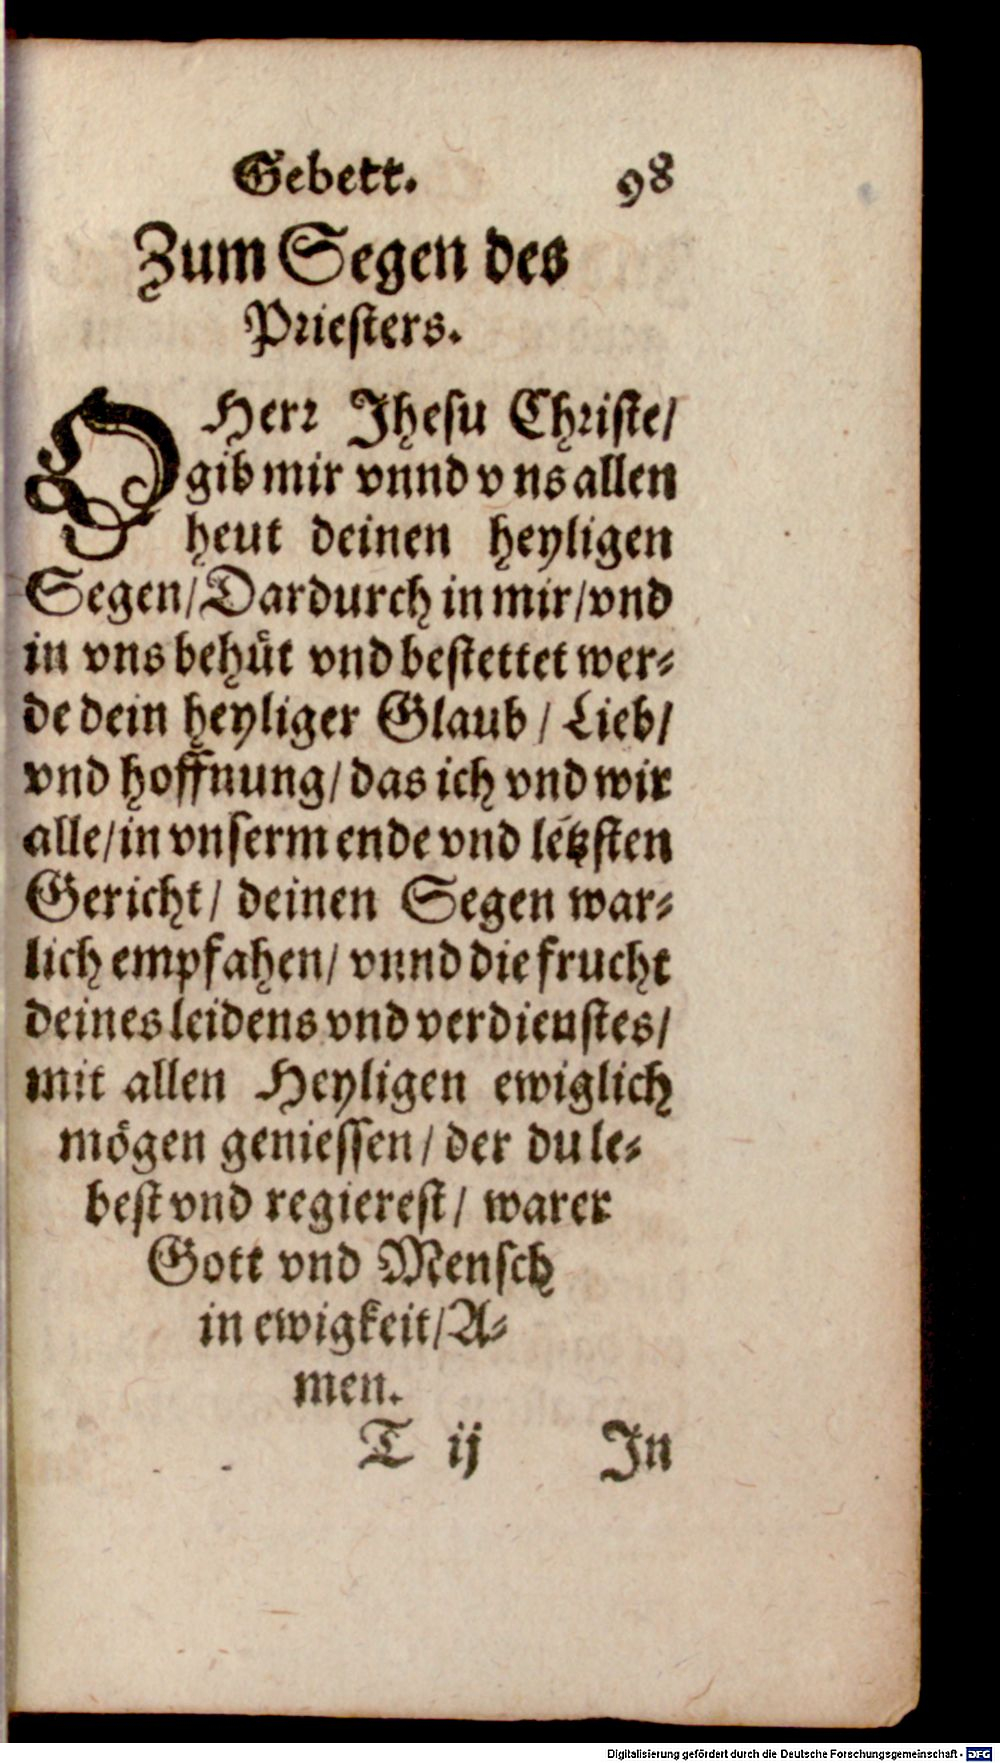 Gebett. 98
Zum Segen des
Priesters.
O Herr Jhesu Christe/
gib mir vnnd vns allen
heut deinen heyligen
Segen/ Dardurch in mir/ vnd
in vns behuͤt vnd bestettet wer⸗
de dein heyliger Glaub / Lieb/
vnd hoffnung/ das ich vnd wir
alle/ in vnserm ende vnd letzsten
Gericht/ deinen Segen war⸗
lich empfahen/ vnnd die frucht
deines leidens vnd verdienstes/
mit allen Heyligen ewiglich
moͤgen geniessen/ der du le⸗
best vnd regierest/ warer
Gott vnd Mensch
in ewigkeit/ A⸗
men.
T ij In
Digitalisierung gefördert durch die Deutsche Forschungsgemeinschaft - DFG